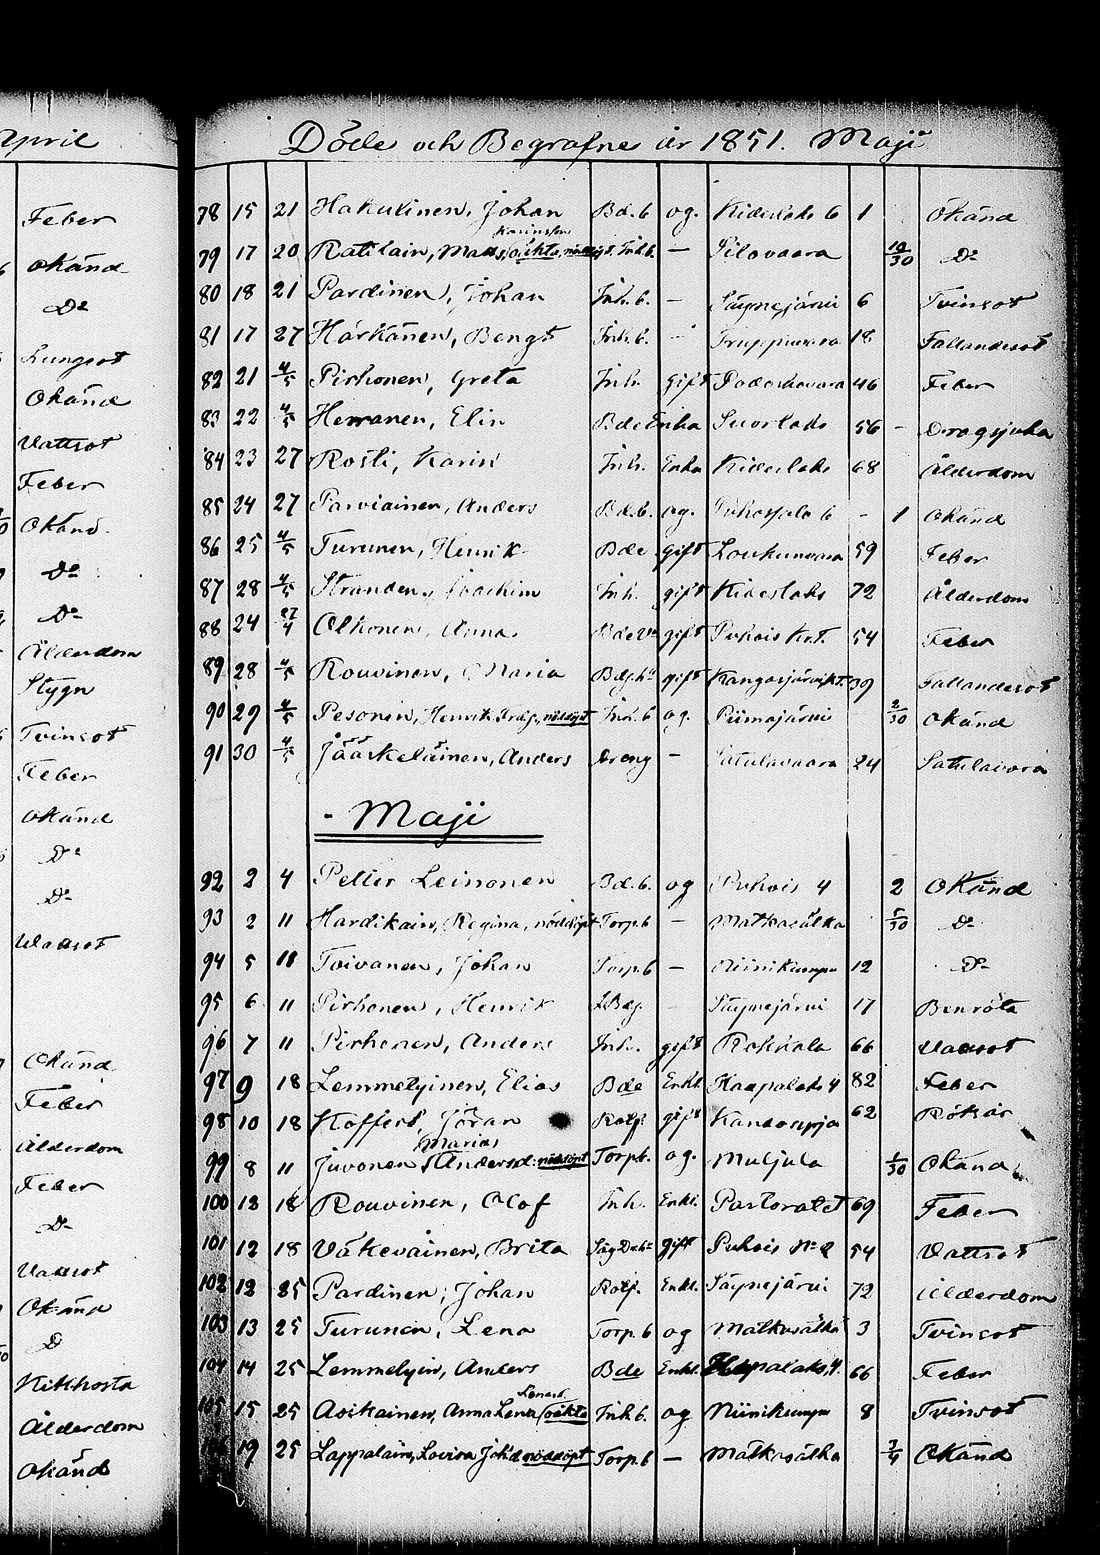 April
Feber
Okänd
Do
Lungsot
Okänd
Vattsot
Feber
Okänd.
Do
Do
Ålderdom
Stygn
Tvinsot
Feber
Okänd
Do
Do
Vattsot
Okänd
Feber
Ålderdom
Feber
Do
Vattsot
Okänd
D
Kikhosta
Ålderdom
Okänd
Döde och Begrafne år 1851. Maji
78 15 21 Hakulinen, Johan Bd. 6 og. Kideslaks 6 1 Okänd
Karinsson
79 17 20 Ratilain, Matts, oäkta, nöddöpt. Inh. 6. — Silovaara 12/30 Do
80 18 21 Pardinen, Johan Inh. 6. — Säynejärvi 6 Tvinsot
81 17 27 Härkänen, Bengt Inh. 6. — 18 Fallandesot
82 21 4/5 Pirhonen, Greta Inh. gift 46 Feber
83 22 4/5 Herranen, Elin Bde Enka Suorlaks 56 - Dragsjuka
84 23 27 Rosti, Karin Inh. Enka Kideslaks 68 Ålderdom
85 24 27 Parviainen, Anders Bd. 6. og. Puhossalo 6 - 1 Okänd
86 25 4/5 Turunen, Henrik Bde gift Loukunvaara 59 Feber
87 28 4/5 Stranden, Joachim Inh. gift Kideslaks 72 Ålderdom
88 24 27/4 Olkonen, Anna gift Puhois 54 Feber
89 28 4/5 Rouvinen, Maria gift Kangasjärvi 39 Fallandesot
90 29 4/5 Pesonen, Henrik Fredr., nöddöpt Inh. 6 og. Piimäjärvi 2/30 Okänd
91 30 4/5 Jääskeläinen, Anders Dreng — Satulavaara 24 Satulavara
- Maji
92 2 4 Petter Leinonen Bd. 6. og Puhois 4 2 Okänd
93 2 11 Hardikain, Regina, nöddöpt Torp. 6 — Matkaselkä 5/30 Do
94 5 11 Toivanen, Johan Torp. 6 — Niinikumpu 12 Do
95 6 11 Pirhonen, Henrik Säynejärvi 17 Benröta
96 7 11 Pirhonen, Anders Inh. gift Rokkala 66 Vattsot
97 9 18 Lemmetyinen, Elias Bde Enkl Haapalaks 4 82 Feber
98 10 18 Hoffert, Jöran Rotf. gift 62 Rötsår
Marias
99 8 11 Juvonen, Andersd. nöddöpt Torp. 6. og. Muljula 1/30 Okänd
100 12 18 Rouvinen, Olof Inh. Enkl. Pastoratet 69 Feber
101 12 18 Väkeväinen, Brita gift Puhois No 2 54 Vattsot
102 12 25 Pardinen, Johan Rotf. Enkl. Säynejärvi 72 Ålderdom
103 13 25 Turunen, Lena Torp. 6 og Matkaselkä 3 Tvinsot
104 14 25 Lemmetyin, Anders Bde Enkl. Hapalaks. 4. 66 Feber
Lenasd.
105 15 25 Asikainen, Anna Lena, oäkta Inh 6. og Niinikumpu 8 Tvinsot
106 19 25 Lappalain, Lovisa Joh:d. nöddöpt Torp. 6 — Matkaselkä 3/4 Okänd